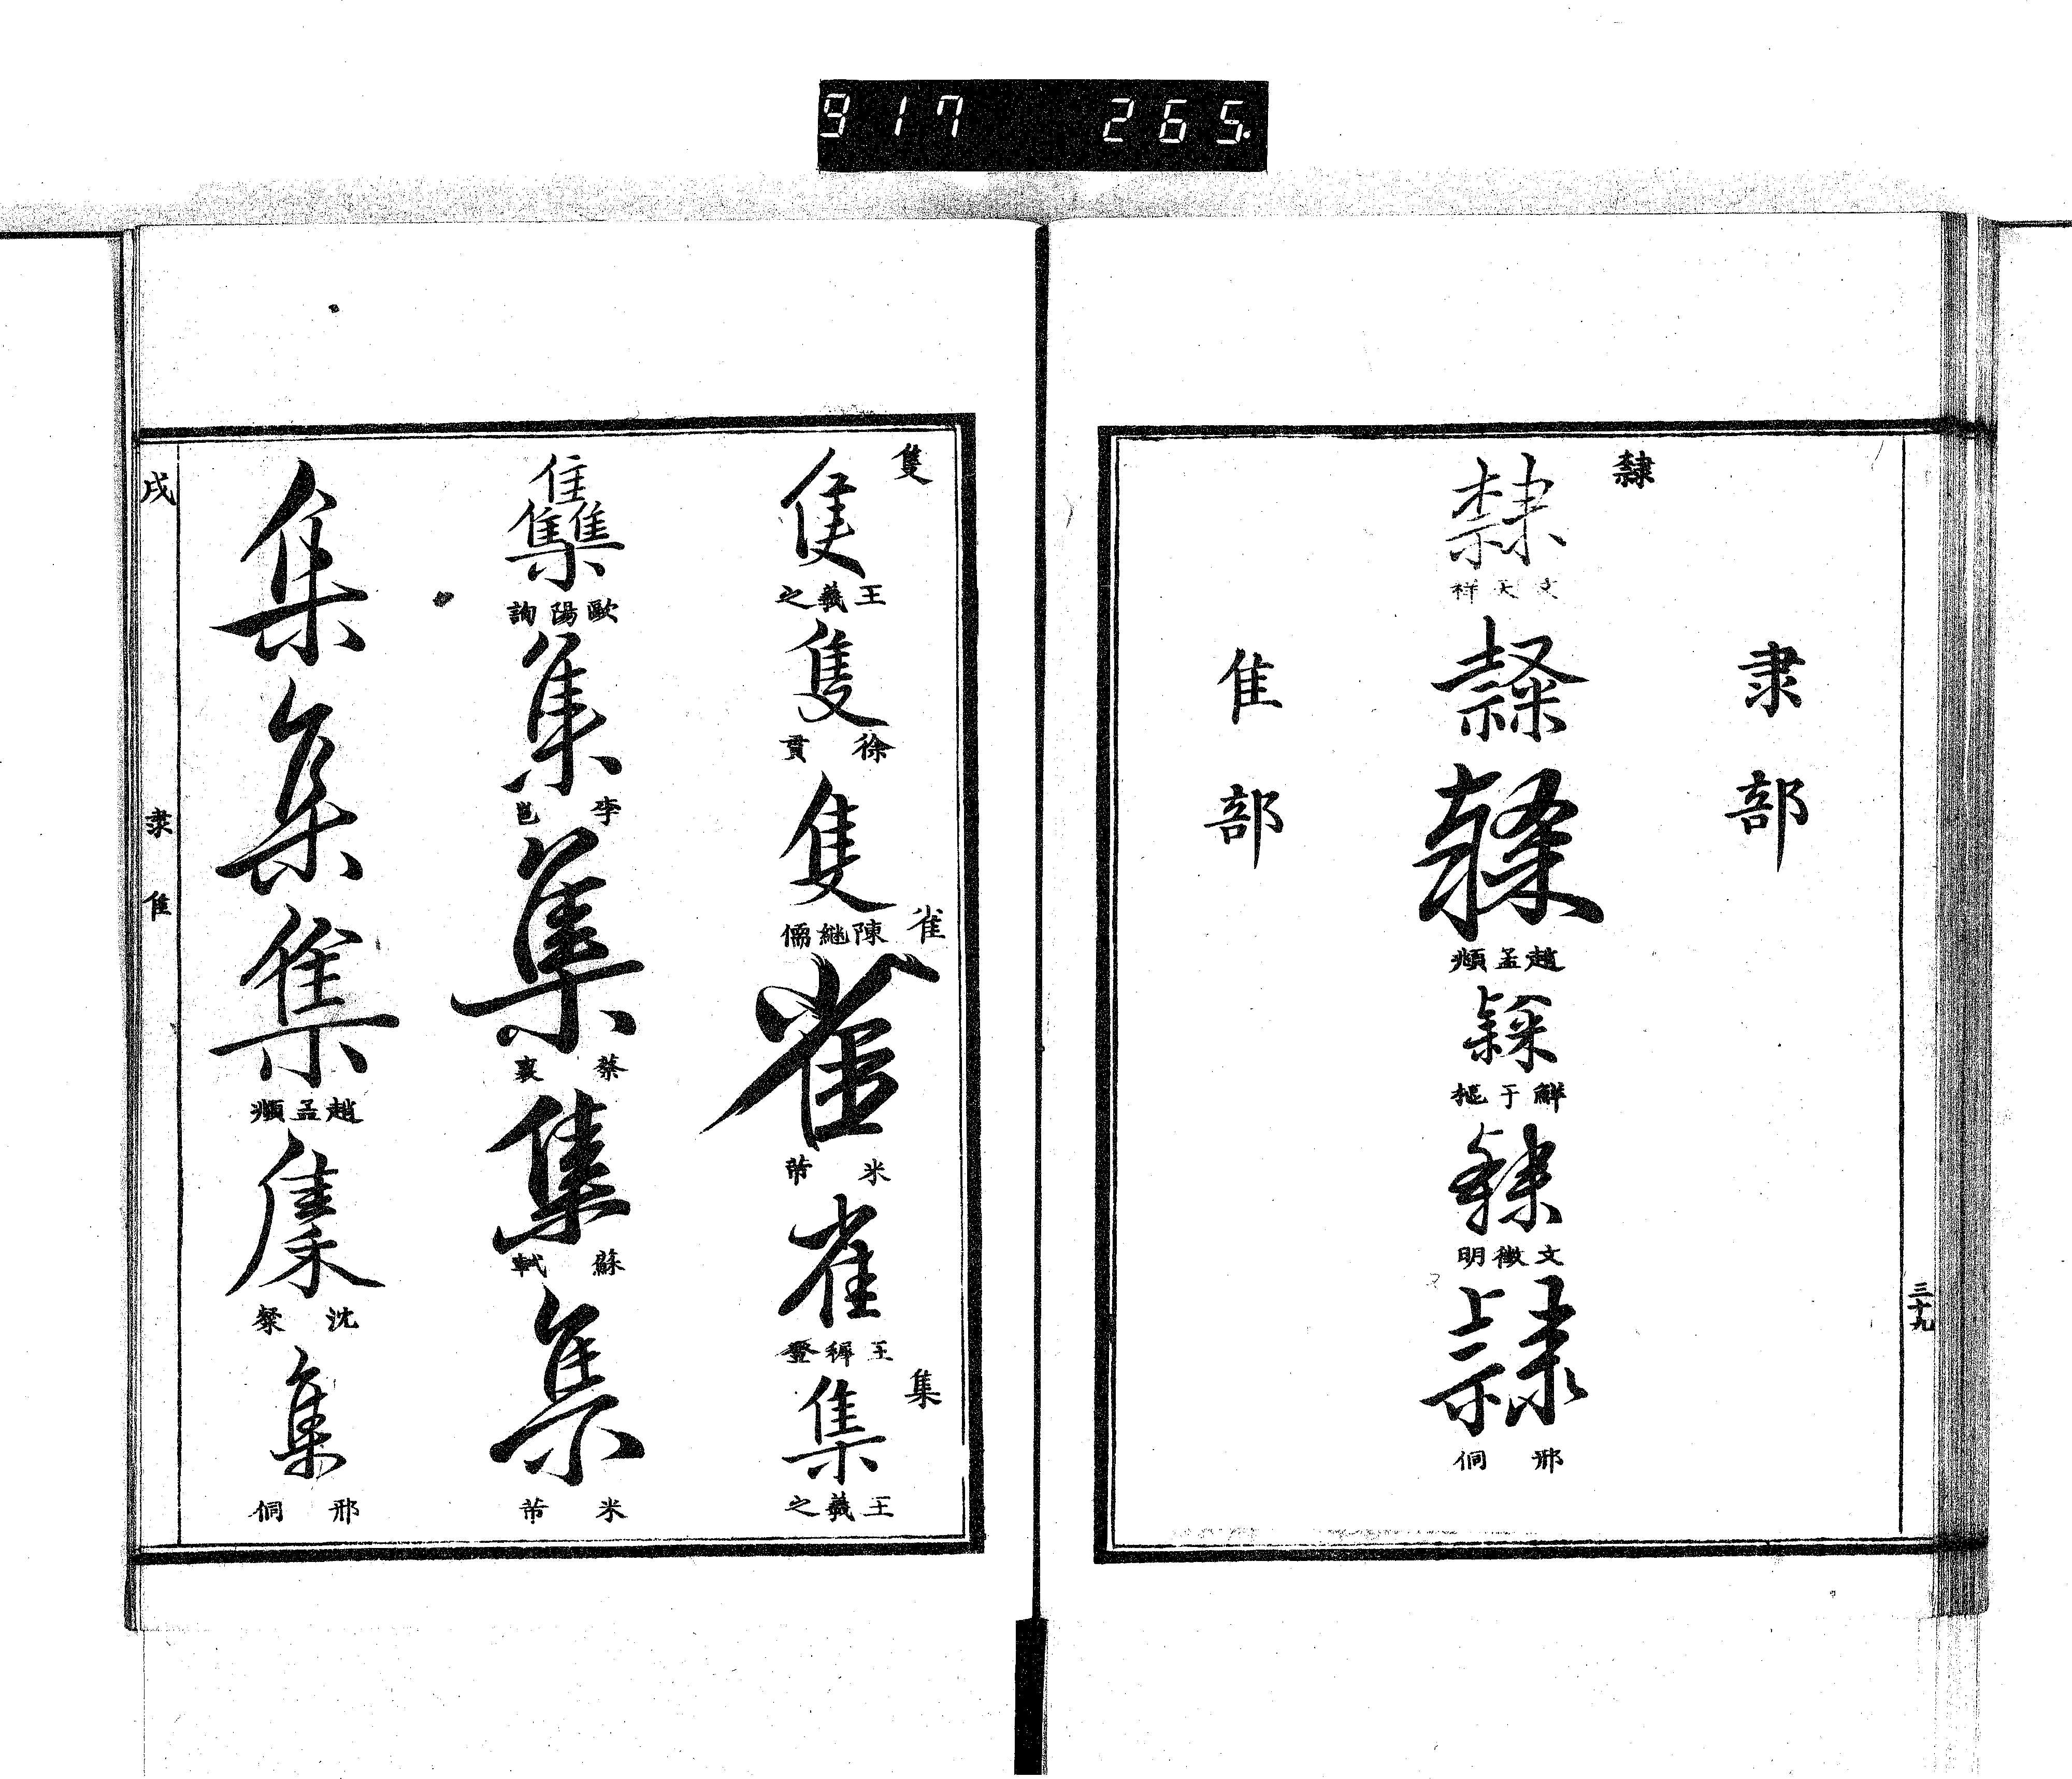 917 265
三十九
隶部
隸
隸
文天祥
隸
隸
趙孟頫
隸
鮮于樞
隸
文徵明
隸
邢侗
隹部
隻
隻
王羲之
隻
徐賁
隻
陳継儒
雀
雀
米芾
雀
王穉登
集
集
王羲之
雧
歐陽詢
集
李邕
集
蔡襄
集
蘇軾
集
米芾
集
集
集
趙孟頫
集
沈粲
集
邢侗
戌 隶 隹